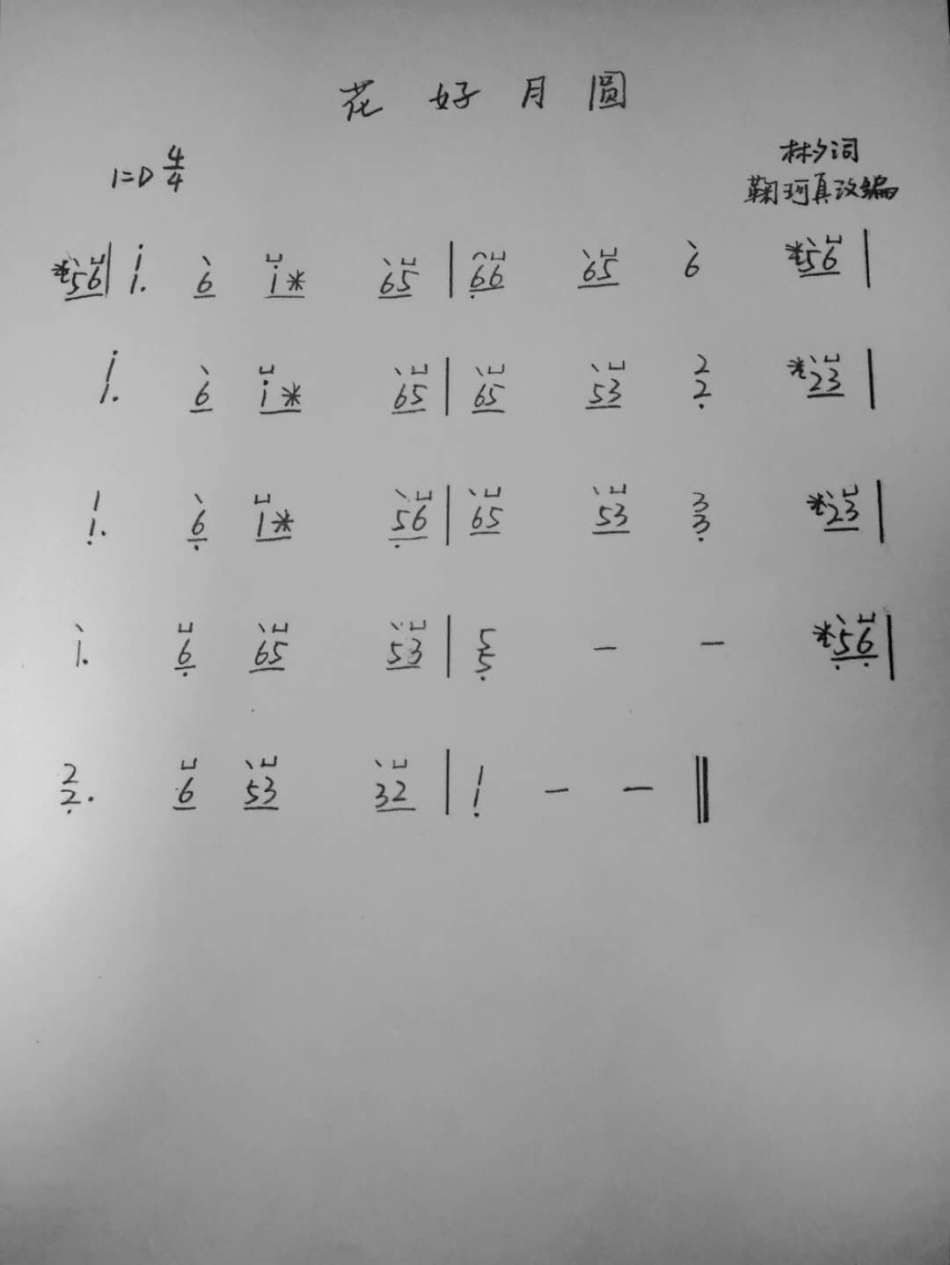 花好月圓
1=D 4/4
林夕词
鞠珂真改编
*56| i. 6 i* 65 | 66 65 6 *56 |
i. 6 i* 65 | 65 53 2/2 *23 |
1/1. 6 1* 56 | 65 53 3/3 *23 |
1. 6 65 53 | 5/5 - - *56 |
2/2. 6 53 32 | 1/1 - - ||